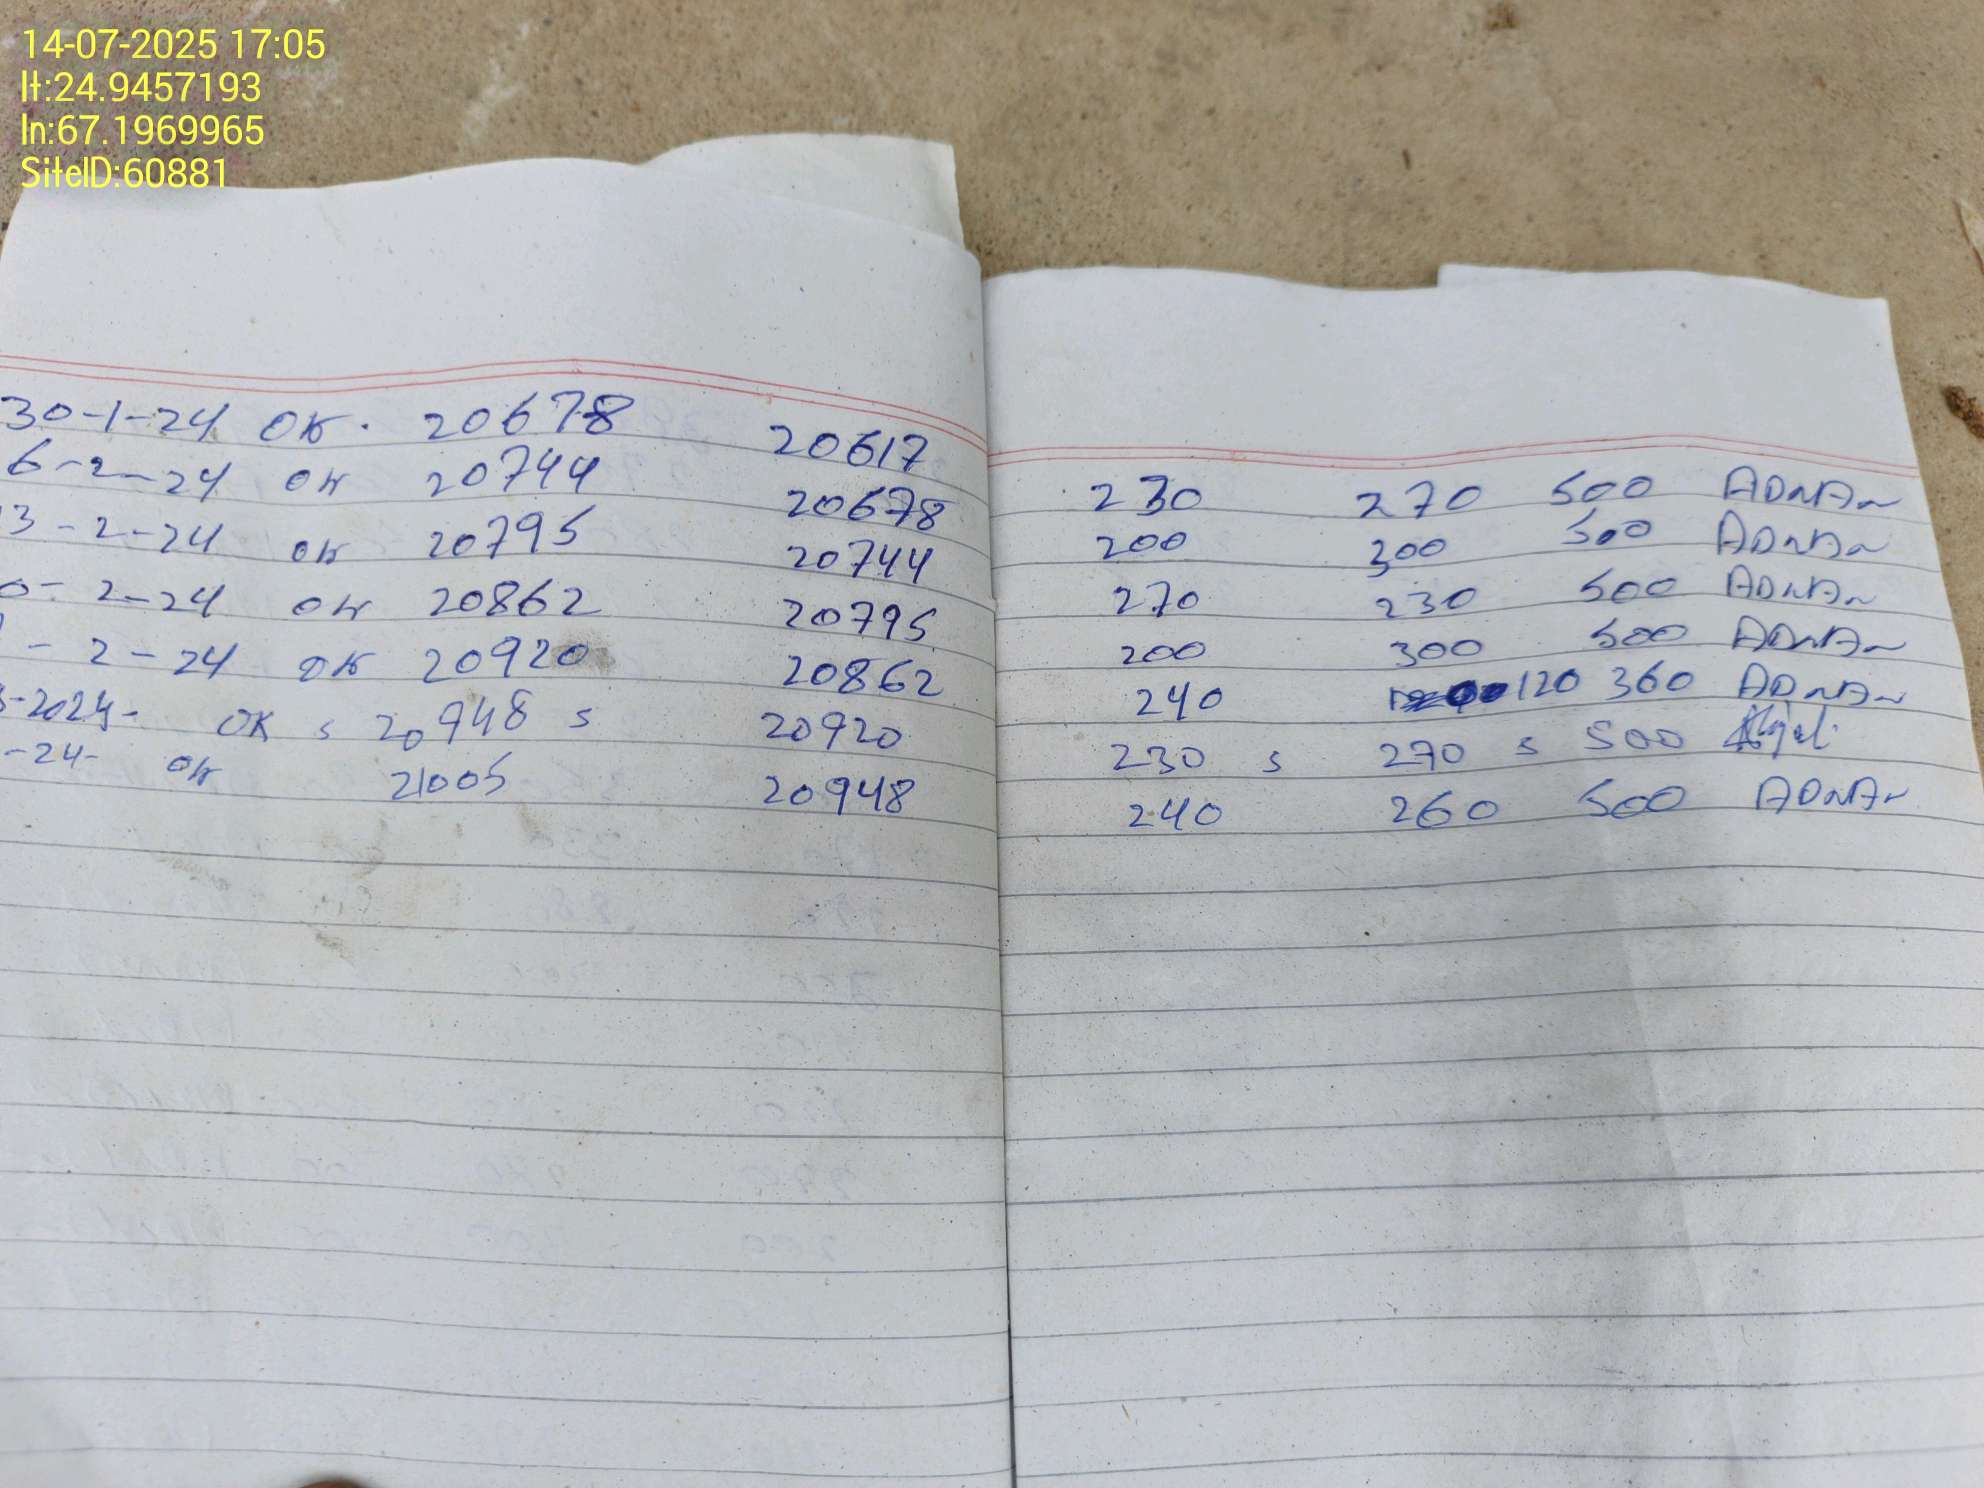 14-07-2025 17:05
lt:24.9457193
ln:67.1969965
SiteID:60881
30-1-24 OK. 20678 20617 230 270 500 ADNAN
6-2-24 OK 20744 20678 200 300 500 ADNAN
3-2-24 OK 20795 20744 270 230 500 ADNAN
0-2-24 OK 20862 20795 200 300 500 ADNAN
-2-24 OK 20920 20862 240 120 360 ADNAN
3-2024- OK s 20948 s 20920 230 s 270 s 500
-24- OK 21005 20948 240 260 500 ADNAN